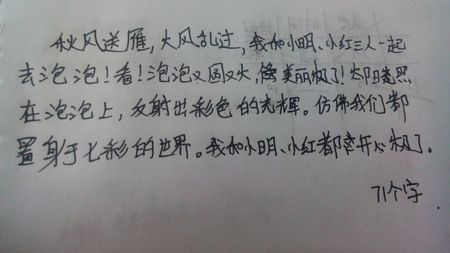 秋风送雁,大风乱过,我和小明、小红三人一起
去泡泡!看!泡泡又圆又大,像美丽极了!太阳
在泡泡上,反射出彩色的光辉。仿佛我们都
置身于七彩的世界。我和小明、小红都幸开心极了。
71个字